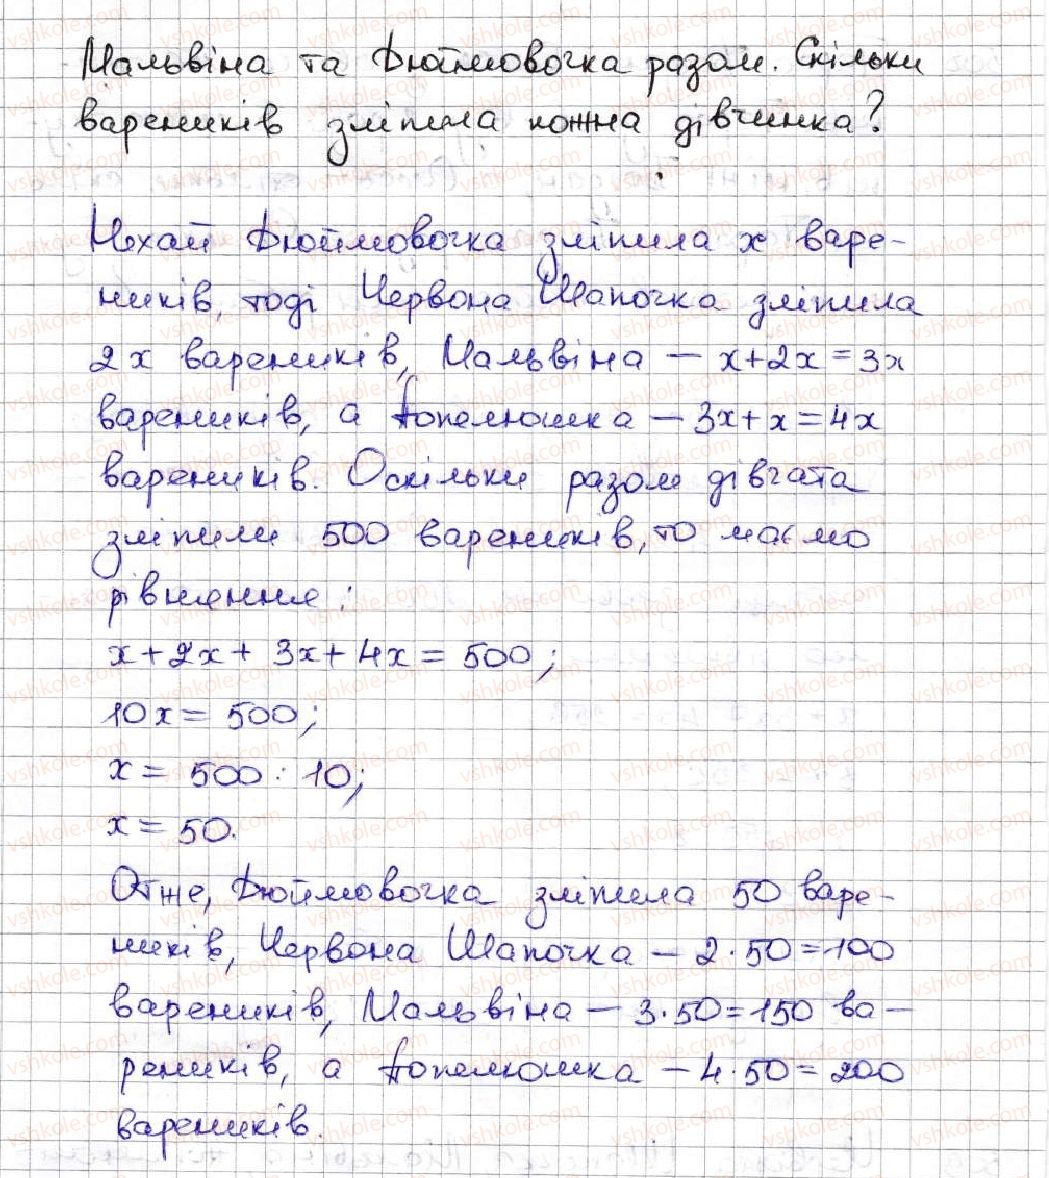 Мальвіна та Дюймовочка разом. Скільки
вареників зліпила кожна дівчинка?
Нехай Дюймовочка зліпила х варе-
ників, тоді Червона Шапочка зліпила
2х вареників, Мальвіна – х+2х=3х
вареників, а Попелюшка – 3х+х=4х
вареників. Оскільки разом дівчата
зліпили 500 вареників, то маємо
рівняння:
х+2х+ 3х+4х= 500;
10х= 500;
х= 500 : 10;
х= 50.
Отже, Дюймовочка зліпила 50 варе-
ників, Червона Шапочка – 2·50=100
вареників, Мальвіна – 3·50=150 ва-
реників, а Попелюшка – 4·50=200
вареників.
vshkole.com